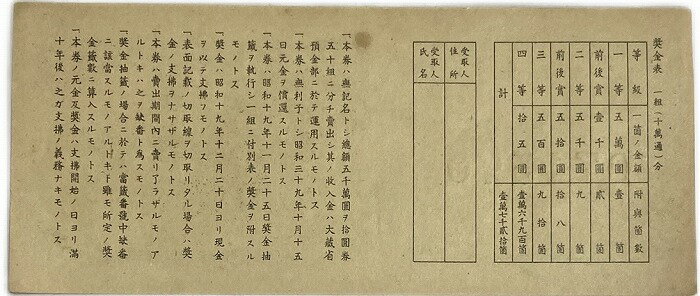 獎金表 一組(十萬通)分
等級 一箇ノ金額 附與箇數
一等 五萬圓 壹箇
前後賞 壹千圓 貳箇
二等 五千圓 九箇
前後賞 五拾圓 拾八箇
三等 五百圓 九拾箇
四等 拾五圓 壹萬六千九百箇
計 壹萬七千貳拾箇
受取人住所
受取人氏名
一本券ハ無記名トシ總額五千萬圓ヲ拾圓券
五十組ニ分チ賣出シ其ノ收入金ハ大藏省
預金部ニ於テ運用スルモノトス
一本券ハ無利子トシ昭和三十九年十月十五
日元金ヲ償還スルモノトス
一本券ハ昭和十九年十一月二十五日獎金抽
籤ヲ執行シ一組ニ付別表ノ獎金ヲ附スル
モノトス
一獎金ハ昭和十九年十二月二十日ヨリ現金
ヲ以テ支拂フモノトス
一表面記載ノ切取線ヲ切取リタル場合ハ獎
金ノ支拂ヲナサザルモノトス
一本券ハ賣出期間內ニ賣リ了ラザルモノア
ルトキハ之ヲ缺番ト爲スモノトス
一獎金抽籤ノ場合ニ於テハ當籤番號中缺番
ニ該當スルモノアルトキト雖モ所定ノ獎
金籤數ニ算入スルモノトス
一本券ノ元金及獎金ハ支拂開始ノ日ヨリ滿
十年後ハ之ガ支拂ノ義務ナキモノトス